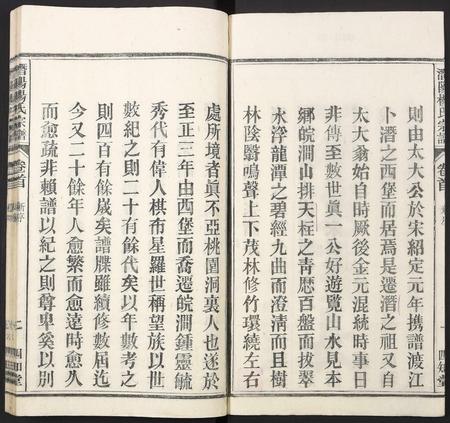 則由太大公於宋紹定元年携譜渡江
卜潛之西堡而居焉是遷潛之祖又自
太大翁始自時厥後金元混統時事日
非傳至數世眞一公好遊覽山水見本
鄉皖澗山排天柱之靑歷百盤而拔翠
水浮龍潭之碧經九曲而澄淸而且樹
林陰翳鳴聲上下茂林修竹環繞左右
處所境者眞不亞桃園洞裏人也遂於
至正三年由西堡而喬遷皖澗鍾靈毓
秀代有偉人棋布星羅世稱望族以世
數紀之則二十有餘代矣以年數考之
則四百有餘歲矣譜牒雖續修數屆迄
今又二十餘年人愈繁而愈遠時愈久
而愈疏非賴譜以紀之則尊卑奚以別
潛陽楊氏宗譜
卷首
新序
四知堂
潛陽楊氏宗譜
卷首
四知堂